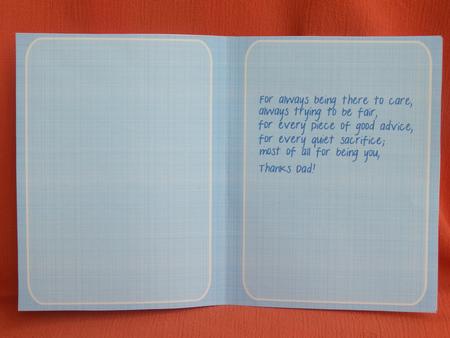 For always being there to care,
always trying to be fair,
for every piece of good advice,
for every quiet sacrifice;
most of all for being you,
Thanks Dad!